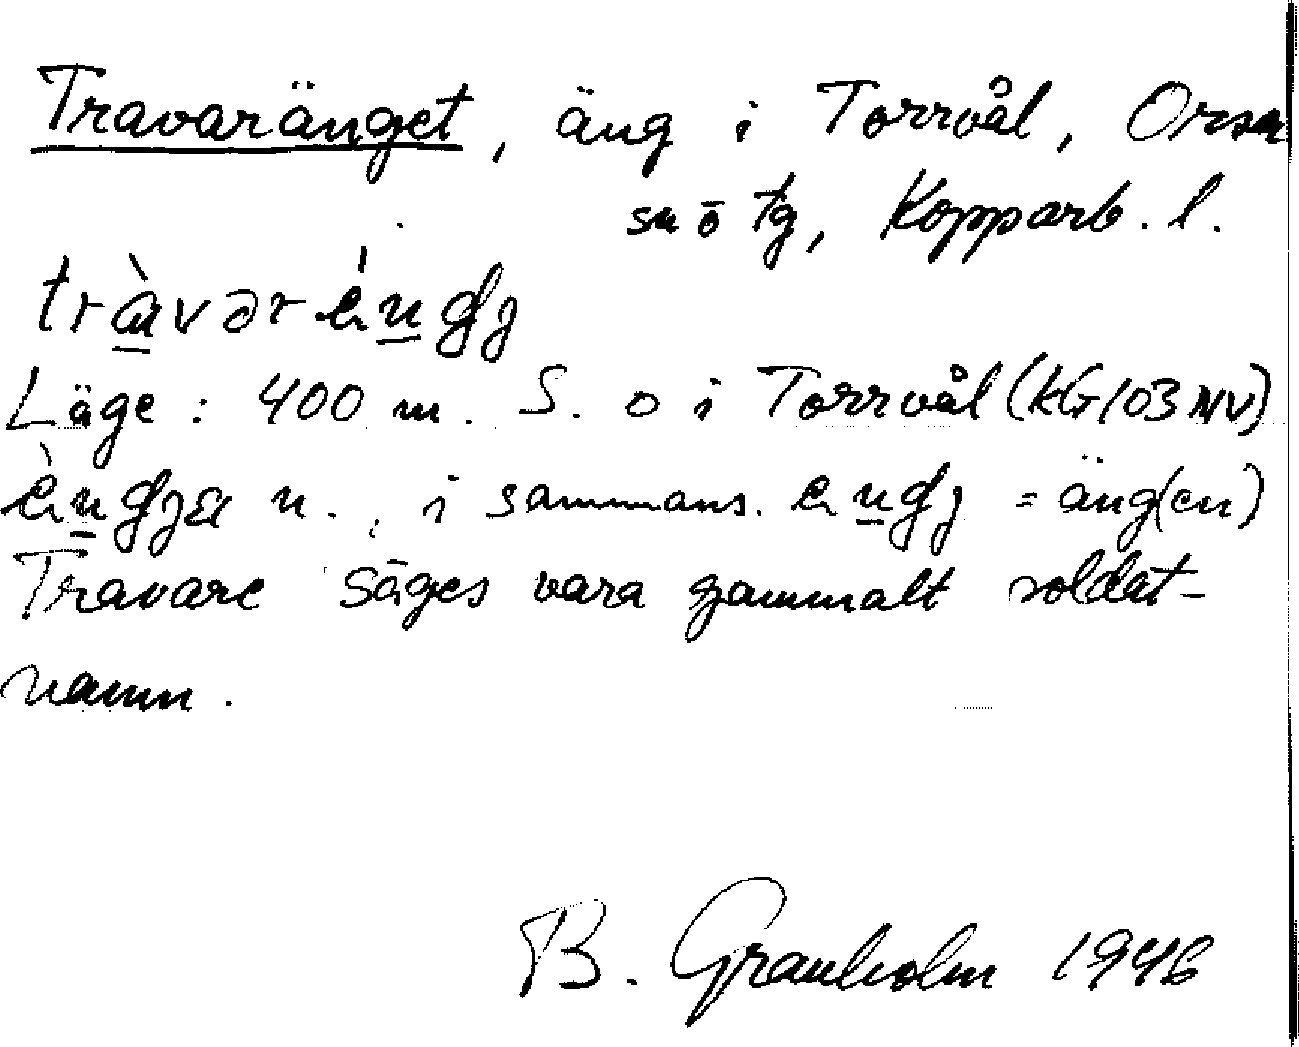 Travaränget, äng i Torrvål, Orsa
sn ō tg, Kopparb. l.
tràvəréngj
Läge: 400 m. S. o i Torrvål (KG103NV)
èngja n., i sammans. engj = äng(en)
Travare säges vara gammalt soldat-
namn.
B. Granholm 1946